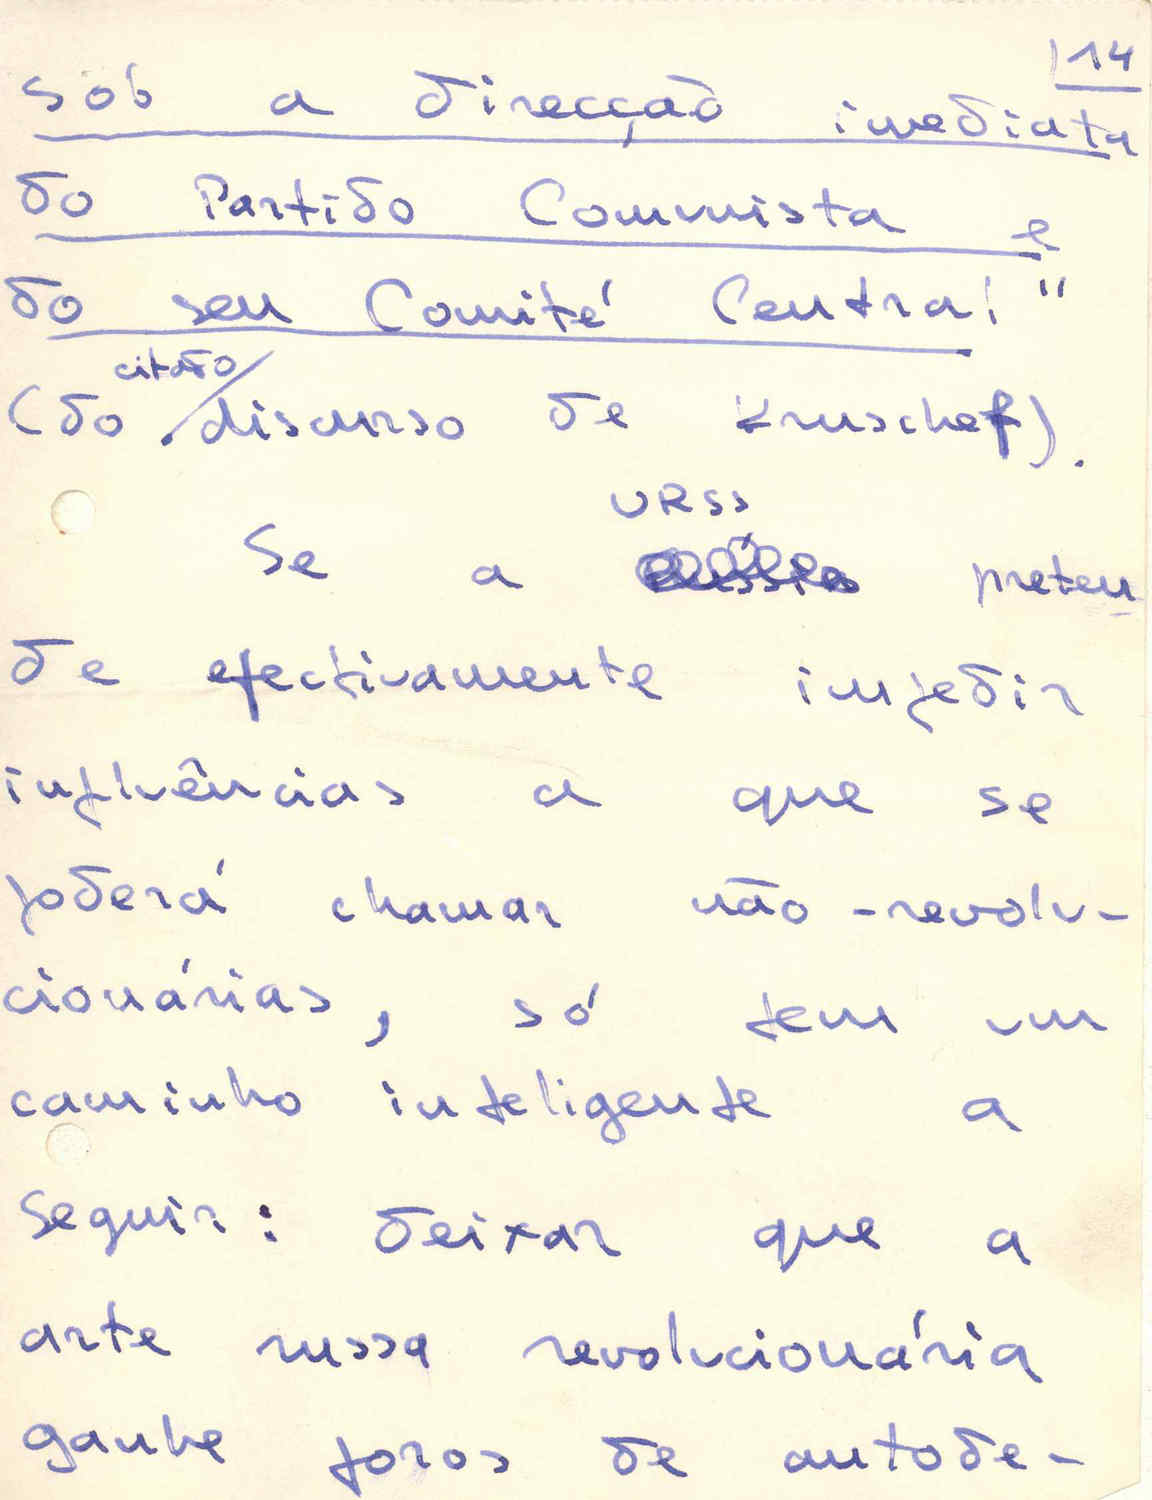 14
sob a direcção imediata
do Partido Comunista e
do seu Comité Central"
(do citado discurso de Kruschef).
URSS
Se a preten
de efectivamente impedir
influências a que se
poderá chamar não-revolu-
cionárias, só tem um
caminho inteligente a
seguir: deixar que a
arte russa revolucionária
ganhe foros de autode-